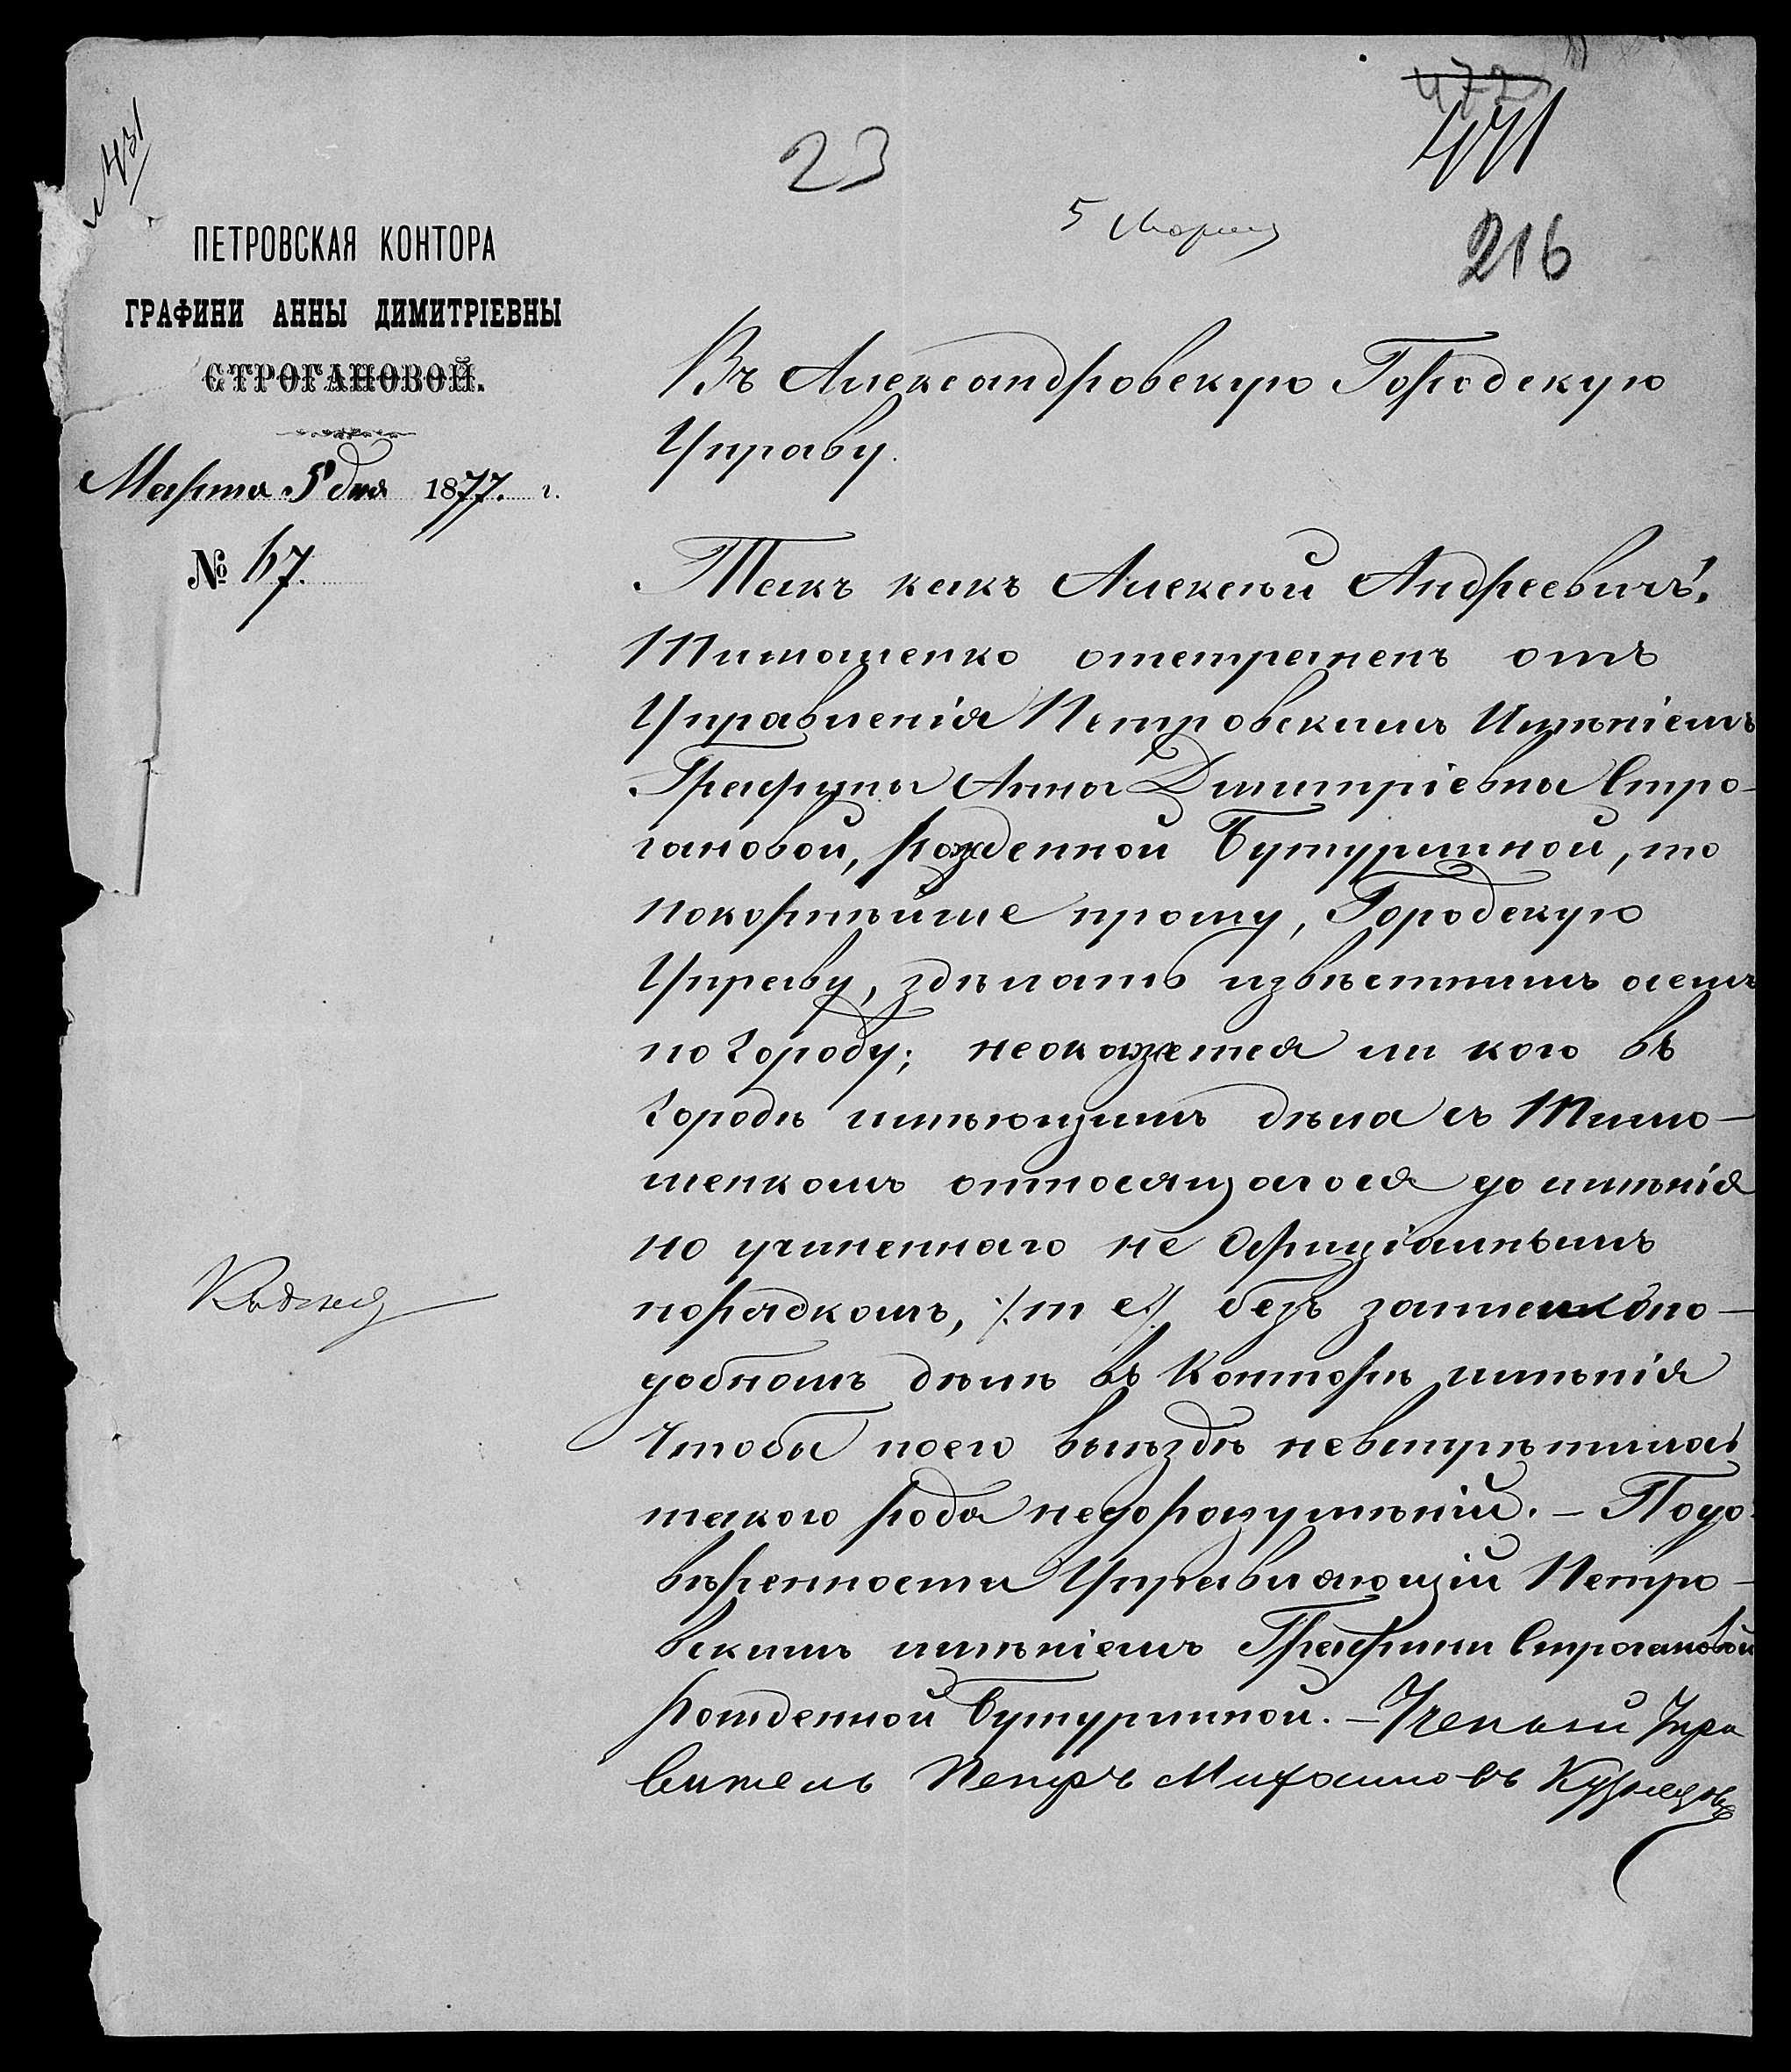 № 431
477
471
23
5 Марта
216
ПЕТРОВСКАЯ КОНТОРА
ГРАФИНИ АННЫ ДИМИТРІЕВНЫ
СТРОГАНОВОЙ.
Марта 5 дня 1877. г.
№ 67.
Въ Александровскую Городскую
Управу.
Такъ какъ Алексѣй Андреевичъ
Тимошенко отстраненъ отъ
Управленія Петровскимъ Имѣніемъ
Графины Анны Димитріевны Стро-
гановой, рожденной Бутурлиной, то
покорнѣйше прошу, Городскую
Управу, здѣлать извѣстнымъ осемъ
по Городу; неокажется ли кого въ
Городѣ имѣющимъ дѣла съ Тимо-
шенкомъ относящагося до имѣнія
но учиненнаго не Офиціалнымъ
порядкомъ, /:т е:/ безъ записки опо-
добномъ дѣлѣ въ Конторѣ имѣнія
Чтобы поего выѣздѣ невстрѣтилось
такого рода недоразумѣній. – Подо-
вѣренности Управляющій Петро-
вскимъ имѣніемъ Графини Строгановой
рожденной Бутурлиной. – Ученый Упра
витель Петръ Михаиловъ Кузнецовъ
Къ дѣлу